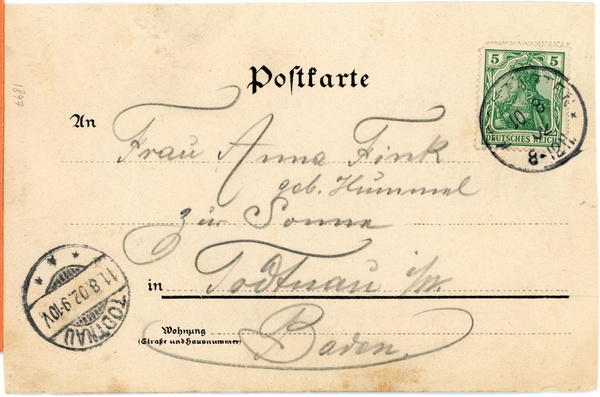 Postkarte
5 5
DEUTSCHES REICH
10 8
8-12N.
1897
An
Frau Anna Fink
geb. Hummel
zur Sonne
in Todtnau i/W.
Wohnung
(Straße und Hausnummer)
Baden.
TODTNAU
11.8.02.9-10V.